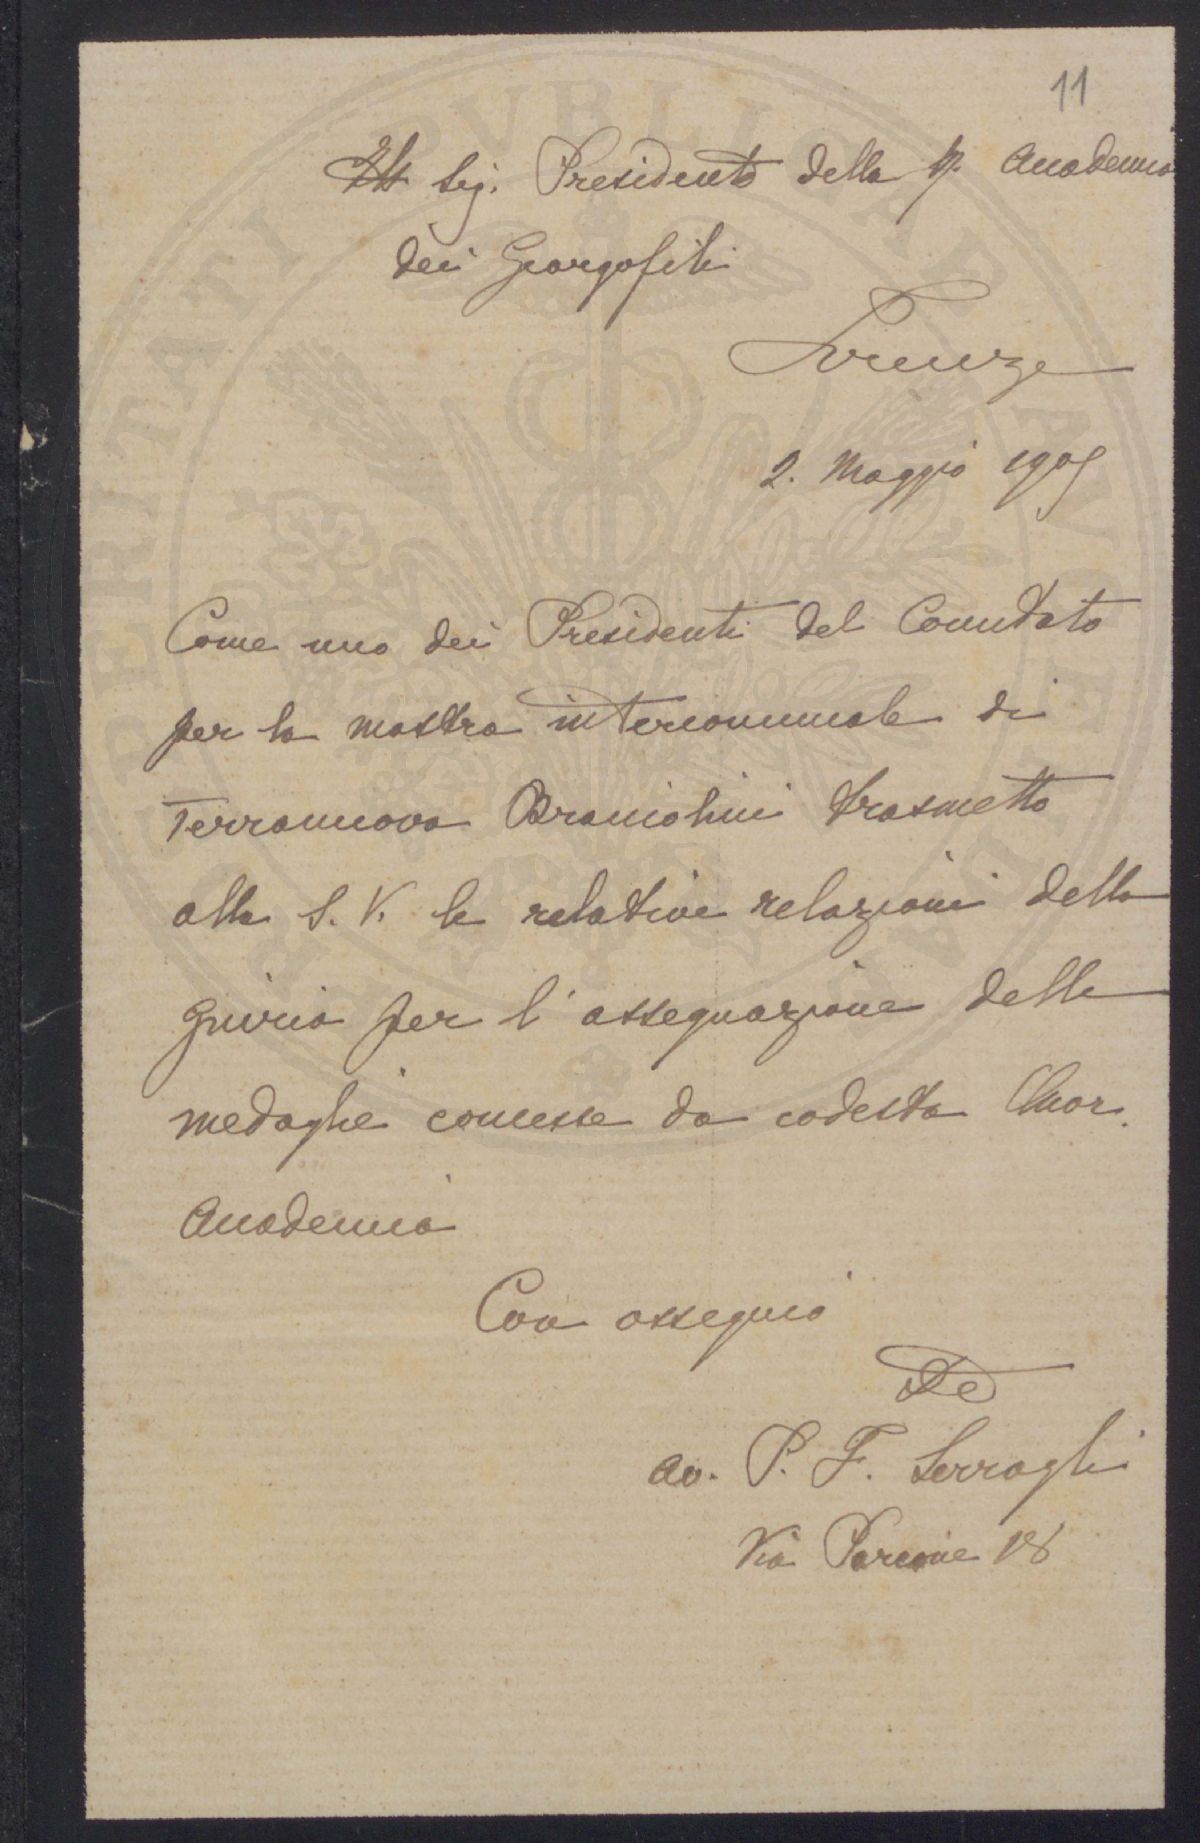 11
Ill Sig. Presidente della R. Accademia
dei Georgofili
Firenze
2. Maggio 1905
Come uno dei Presidenti del Comitato
per la mostra intercomunale di
Terranuova Bracciolini trasmetto
alla S. V. le relative relazioni della
Giuria per l'assegnazione delle
medaglie concesse da codesta Onor.
Accademia
Con ossequio
Av. P. F. Serragli
Via Parione 18
PVBLICAE
PERITATI